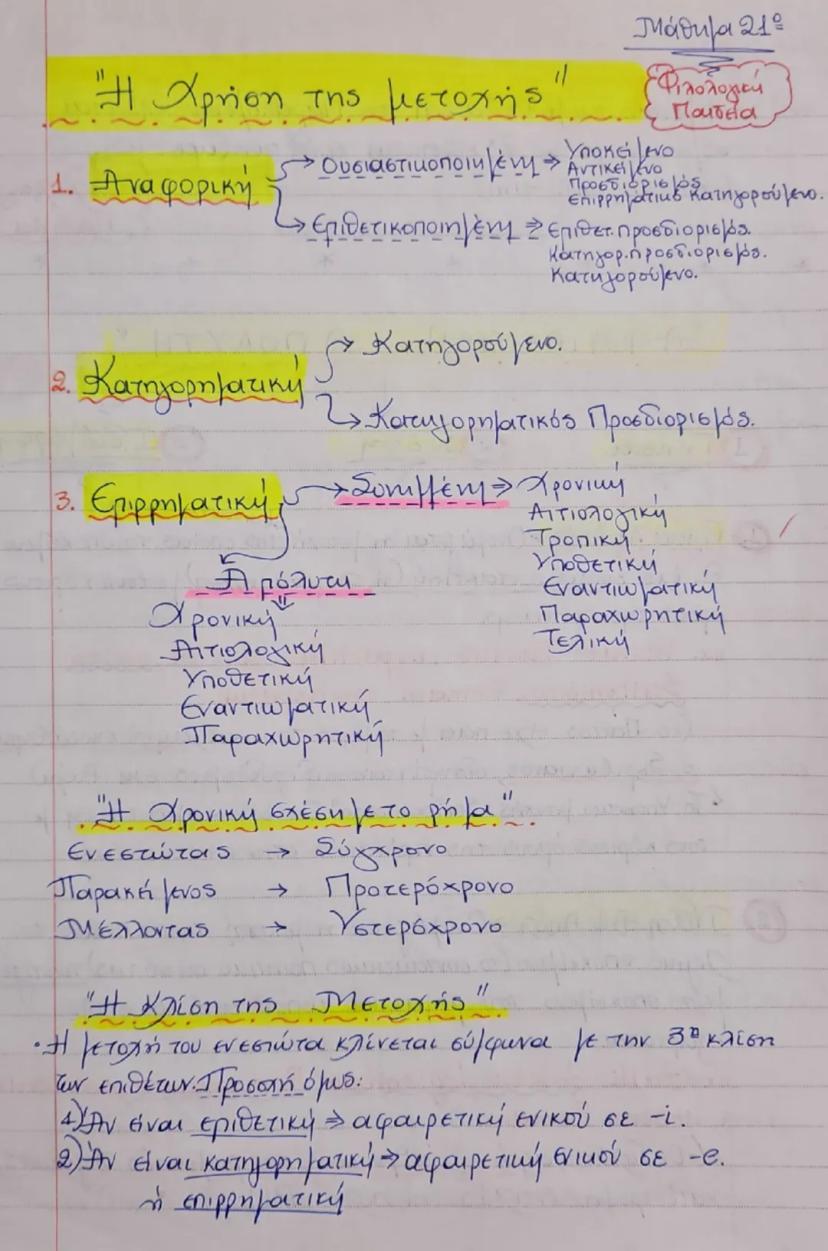 Μάθημα 21º
"Η Χρήση της μετοχής"
Φιλολογική
Παιδεία
1. Αναφορική → Ουσιαστικοποιημένη ⇒ Υποκείμενο
Αντικείμενο
Προσδιορισμός
Επιρρηματικό Κατηγορούμενο.
→ Επιθετικοποιημένη ⇒ Επιθετ. Προσδιορισμός.
Κατηγορ. προσδιορισμός.
Κατηγορούμενο.
2. Κατηγορηματική → Κατηγορούμενο.
→ Κατηγορηματικός Προσδιορισμός.
3. Επιρρηματική → Συνημμένη ⇒ Χρονική
Αιτιολογική
Τροπική
Υποθετική
Εναντιωματική
Παραχωρητική
Τελική
Απόλυτη
⇓
Χρονική
Αιτιολογική
Υποθετική
Εναντιωματική
Παραχωρητική
"Η Χρονική σχέση με το ρήμα".
Ενεστώτας → Σύγχρονο
Παρακήμενος → Προτερόχρονο
Μέλλοντας → Υστερόχρονο
"Η Κλίση της Μετοχής"
• Η μετοχή του ενεστώτα κλίνεται σύμφωνα με την 3η κλίση
των επιθέτων. Προσοχή όμως:
1) Αν είναι επιθετική ⇒ αφαιρετική ενικού σε -i.
2) Αν είναι κατηγορηματική ⇒ αφαιρετική ενικού σε -e.
ή επιρρηματική